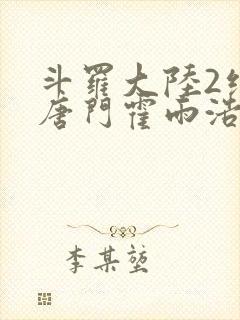 斗羅大陸2
唐門霍雨浩
李某堃